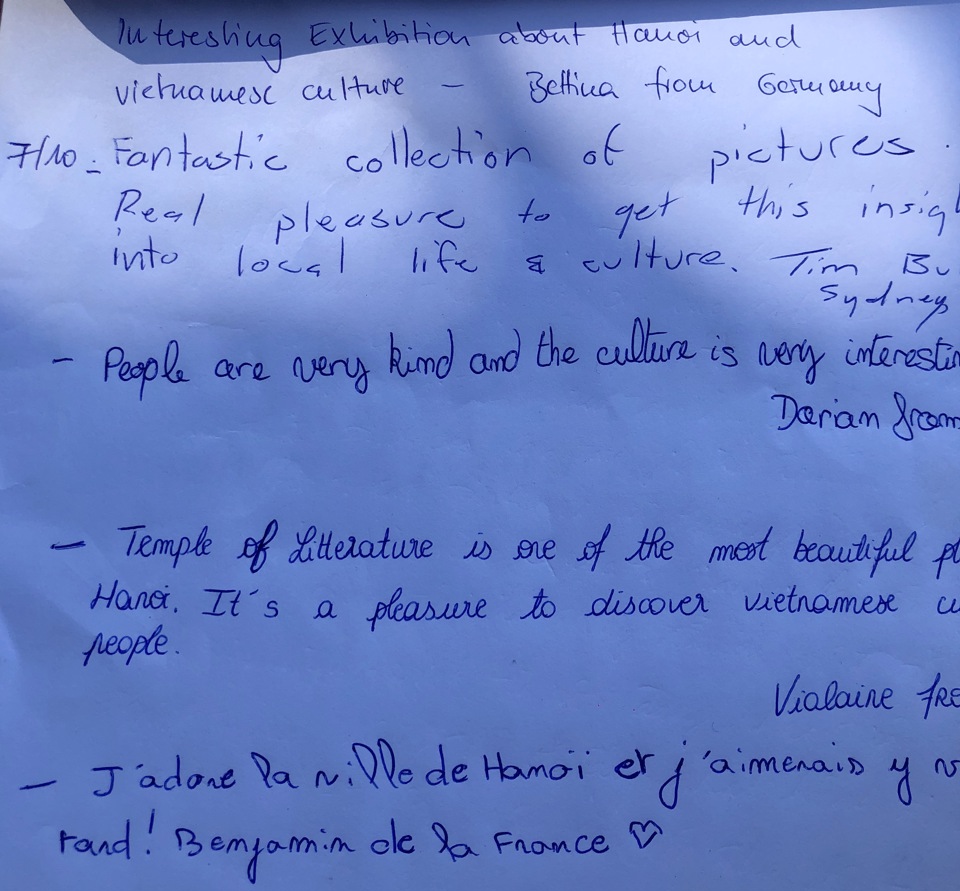 Interesting Exhibition about Hanoi and
vietnamese culture – Bettina from Germany
7/10 - Fantastic collection of pictures.
Real pleasure to get this
into local life & culture. Tim
Sydney
- People are very kind and the culture is very
Darian from
- Temple of Litterature is one of the most beautiful
Hanoi. It's a pleasure to discover vietnamese
people.
Vialaine
- J'adore la ville de Hanoï et j'aimerais y
tard! Benjamin de la France ♡